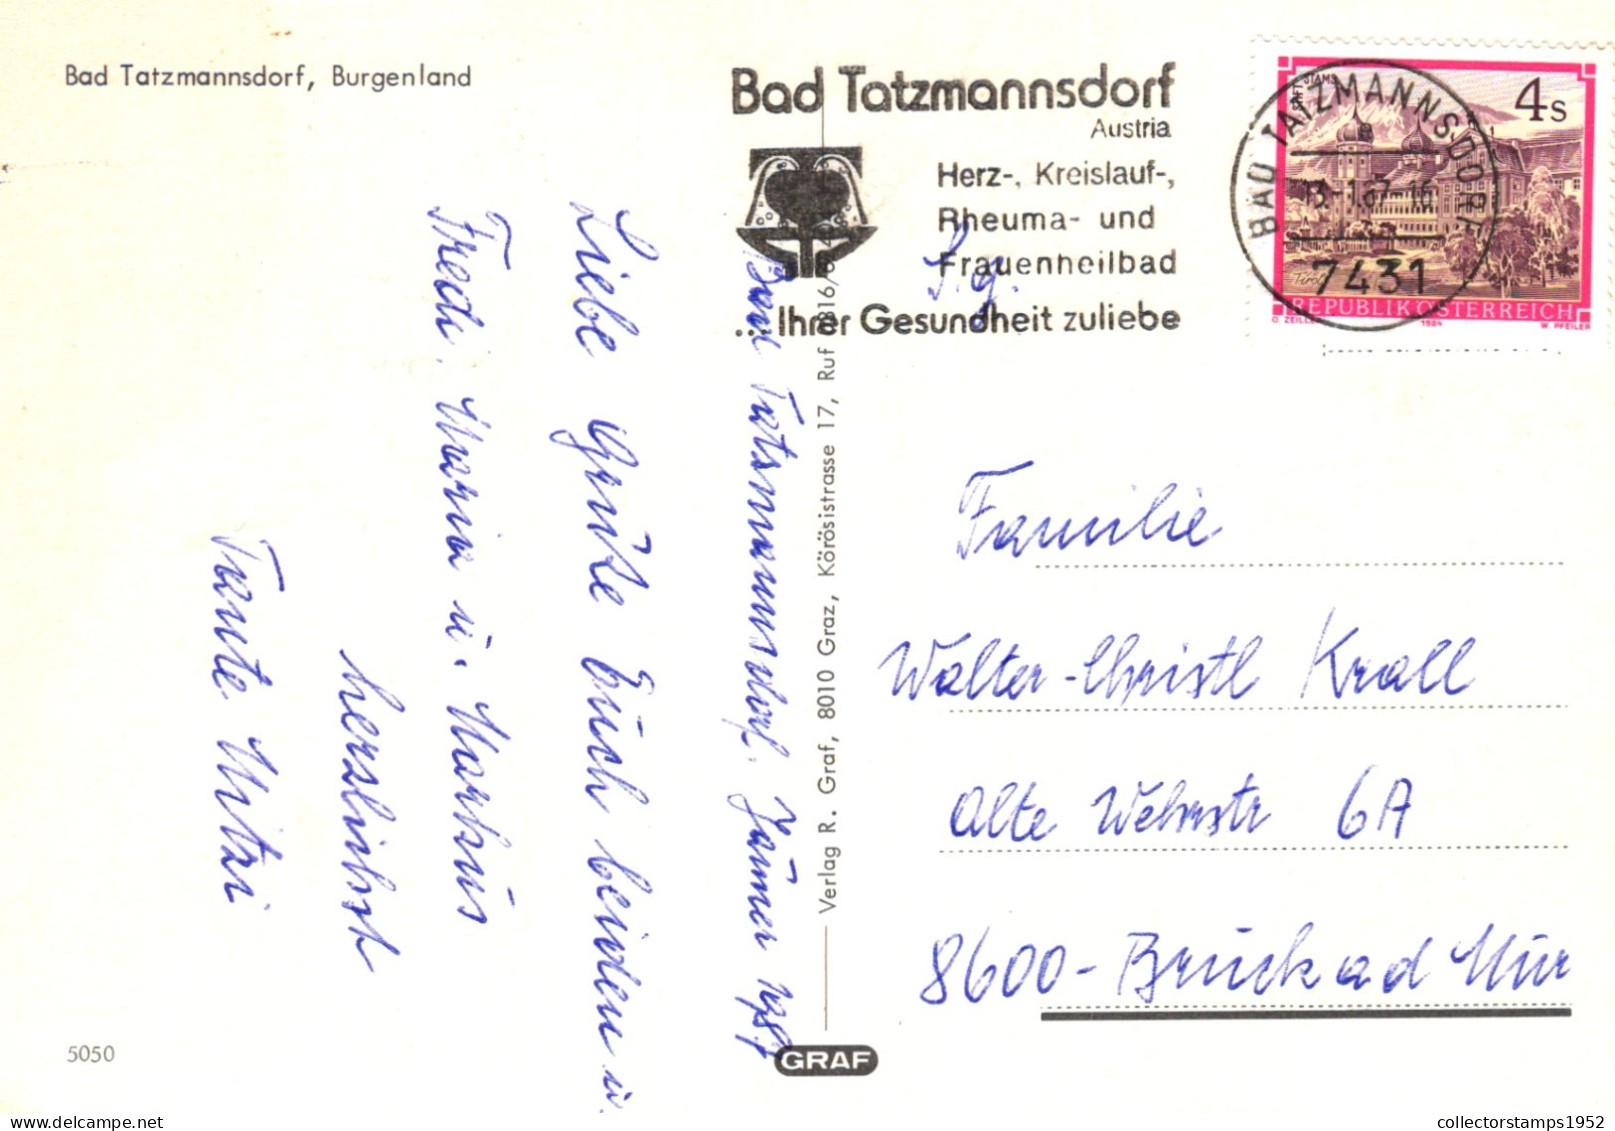 Bad Tatzmannsdorf, Burgenland
Bad Tatzmannsdorf
Austria
Herz-, Kreislauf-,
Rheuma- und
Frauenheilbad
... Ihrer Gesundheit zuliebe
BAD TATZMANNSDORF
13.-1.87-16
7431
STIFT STAMS
4 S
REPUBLIK ÖSTERREICH
1984
W. PFEILER
Bad Tatzmannsdorf. Jänner 1987
Liebe Grüße Euch beiden u.
Fredi. Maria u. Markus
herzlichst
Tante Mitzi
Verlag R. Graf, 8010 Graz, Körösistrasse 17, Ruf
GRAF
S. g.
Familie
Walter-Christl Krall
Alte Wehrstr 6A
8600-Bruck a d Mur
5050
collectorstamps1952